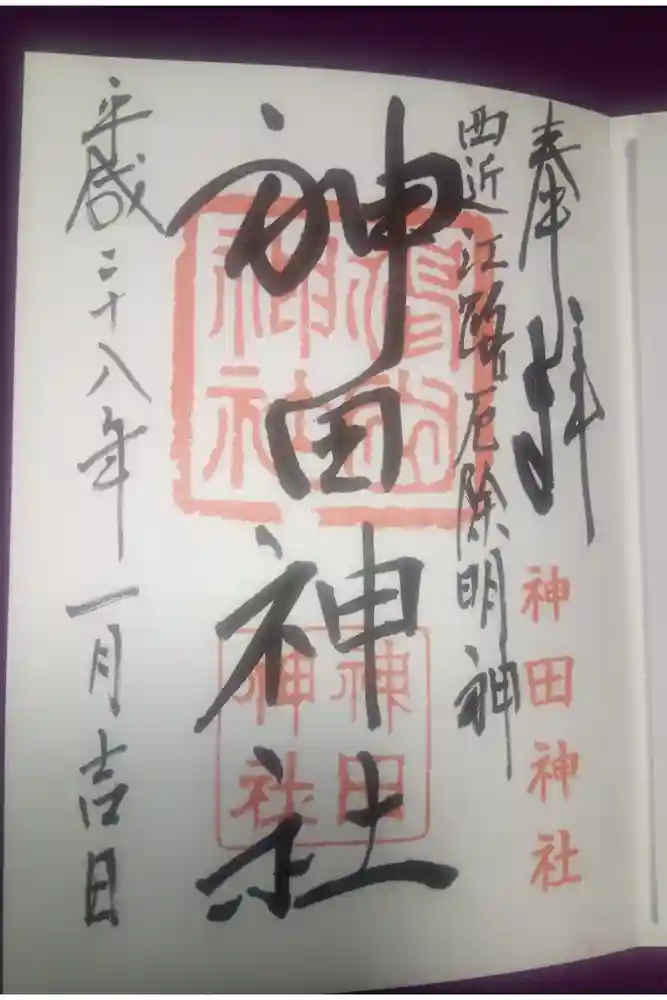 奉拝
神田神社
西近江路厄除明神
神田神社
神田
神社
神社
平成二十八年一月吉日